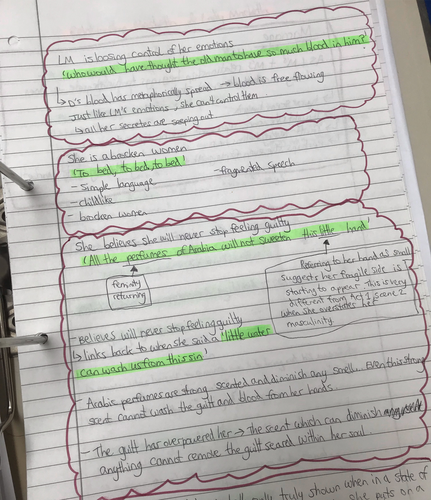 LM is loosing control of her emotions
'who would have thought the old man to have so much blood in him?'
↳ D's blood has metaphorically spread → blood is free flowing
just like LM's emotions, she can't control them
↳ all her secretes are seeping out
She is a brocken women
'To bed, to bed, to bed'
- simple language - fragmented speech
- childlike
- brocken women
She believes she will never stop feeling guilty
'All the perfumes of Arabia will not sweeten this little hand'
feminity
returning
Referring to her hand as small
suggests her fragile side is
starting to appear. This is very
different from Act 1 scene 2
when she overstates her
masculinity.
- Believes will never stop feeling guilty
↳ links back to when she said a 'little water
can wash us from this sin'
- Arabic perfumes are strong scented and diminish any smell... Even this strong
scent cannot wash the guilt and blood from her hands.
- The guilt has overpowered her → The scent which can diminish
anything cannot remove the guilt seared within her soul
truly shown when in a state of
or a